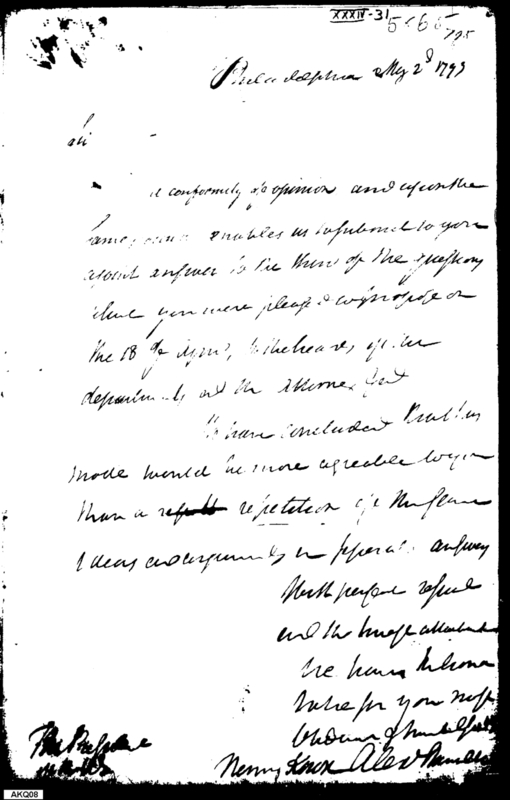 XXXIV-31
Philadelphia May 2d 1793
Sir
a conformity of opinion and upon the
same enables us to submit to you
a joint answer to the three of the questions
that you were pleased to propose on
the 18 of April, to the heads of the
departments and the Attorney Genl
We have concluded that this
mode would be more agreeable to you
than a result repetition of the same
Ideas and arguments in separate answers
With perfect respect
and the truest attachment
we have the honor
to be for your most
Obedient & humble
The President
Henry Knox Alex Hamilton
AKQ08